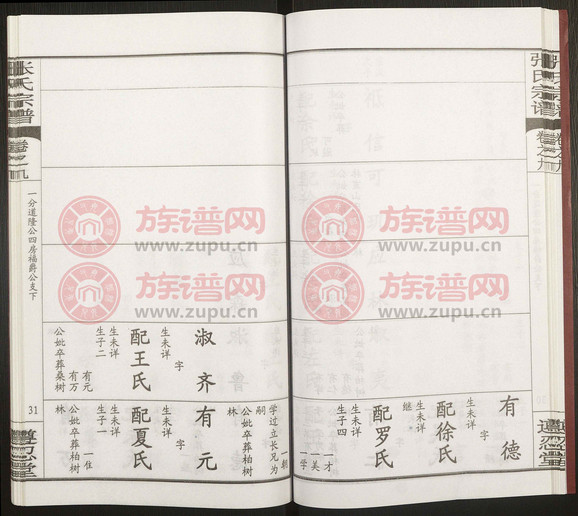 张氏宗谱
卷之九
有德
字
生未详
配徐氏
生未详
继
配罗氏
生子四
一才
一美
一学
学过立长兄为
嗣
公妣卒葬柏树
林
张氏宗谱
卷之九
淑齐
字
生未详
配王氏
生未详
生子二
有元
有万
公妣卒葬桑树
有元
字
生未详
配夏氏
生未详
生子一
一住
公妣卒葬柏树
林
一分道隆公四房福爵公支下
31
遵忍堂
族谱网
www.zupu.cn
族谱网
www.zupu.cn
族谱网
www.zupu.cn
族谱网
www.zupu.cn